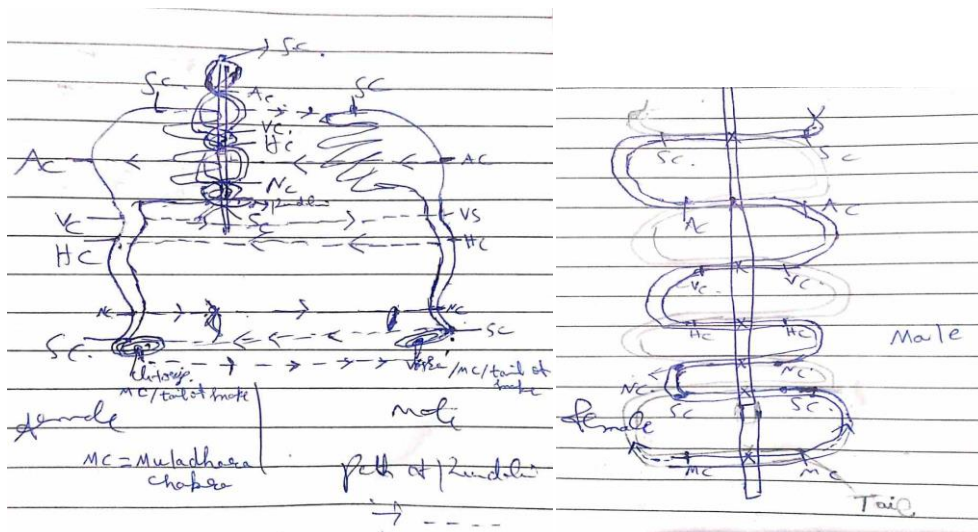 SC.
SC
SC
AC
VC.
HC
AC
AC
NC
Kundalini
VC
SC
VS
HC
HC
NC
NC
SC.
SC
MC/tail of snake
/MC/tail of snake
female
MC = Muladhara chakra
path of Kundalini
SC
SC
AC
AC
VC.
VC.
HC
HC
Male
NC.
NC.
SC
SC.
female
MC
MC
Tail